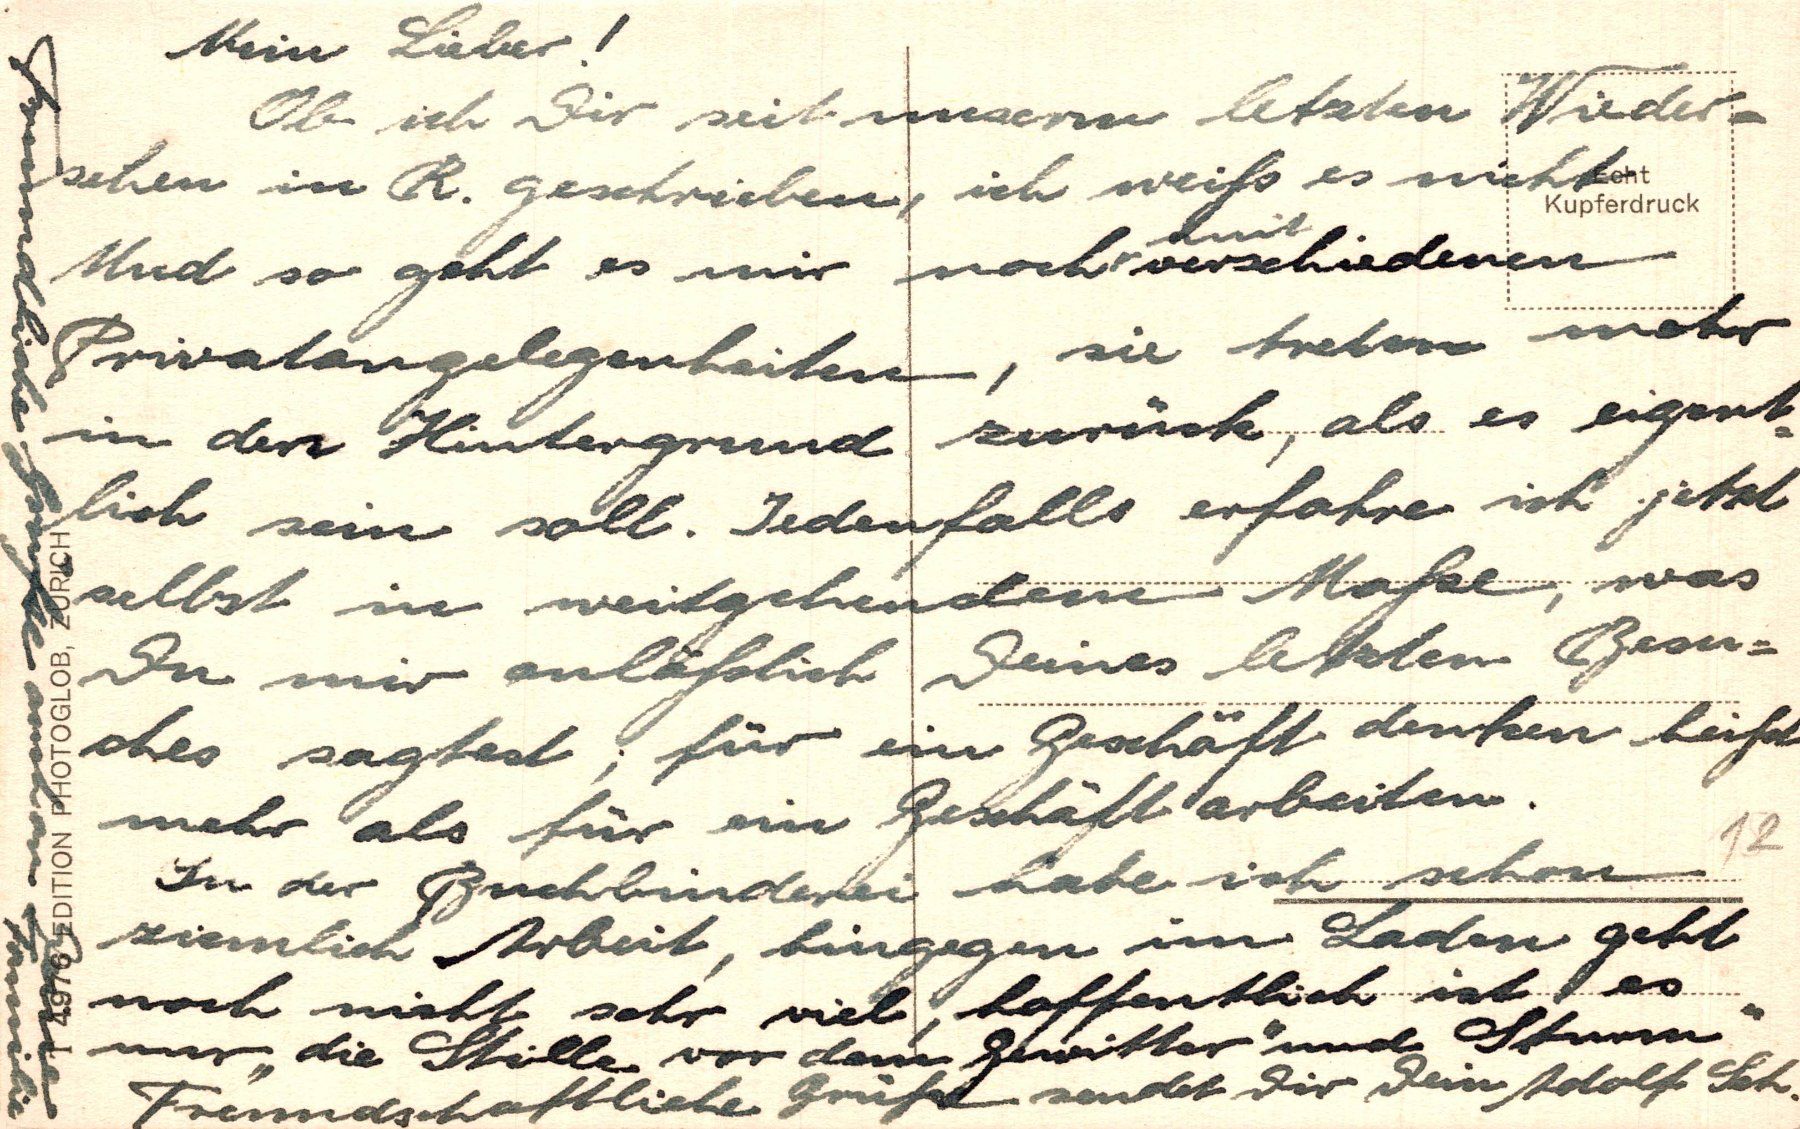 Mein Lieber!
Ob ich Dir seit unserm letzten Wieder=
sehen in R. geschrieben, ich weiß es nicht.
mit
Und so geht es mir noch verschiedenen
Privatangelegenheiten, sie treten mehr
in den Hintergrund zurück, als es eigent=
lich sein soll. Jedenfalls erfahre ich jetzt
selbst in weitgehendem Maße, was
Du mir anläßlich Deines letzten Besu=
ches sagtest; für ein Geschäft denken heißt
mehr als für ein Geschäft arbeiten.
In der Buchbinderei habe ich schon
ziemlich Arbeit, hingegen im Laden geht
noch nicht sehr viel, hoffentlich ist es
nur „die Stille vor dem Gewitter" und Sturm"
Freundschaftliche Grüße sendet Dir Dein Adolf Sch.
Freundliche Grüße an Deine
Familie
T 4976 EDITION PHOTOGLOB, ZÜRICH
Echt
Kupferdruck
12